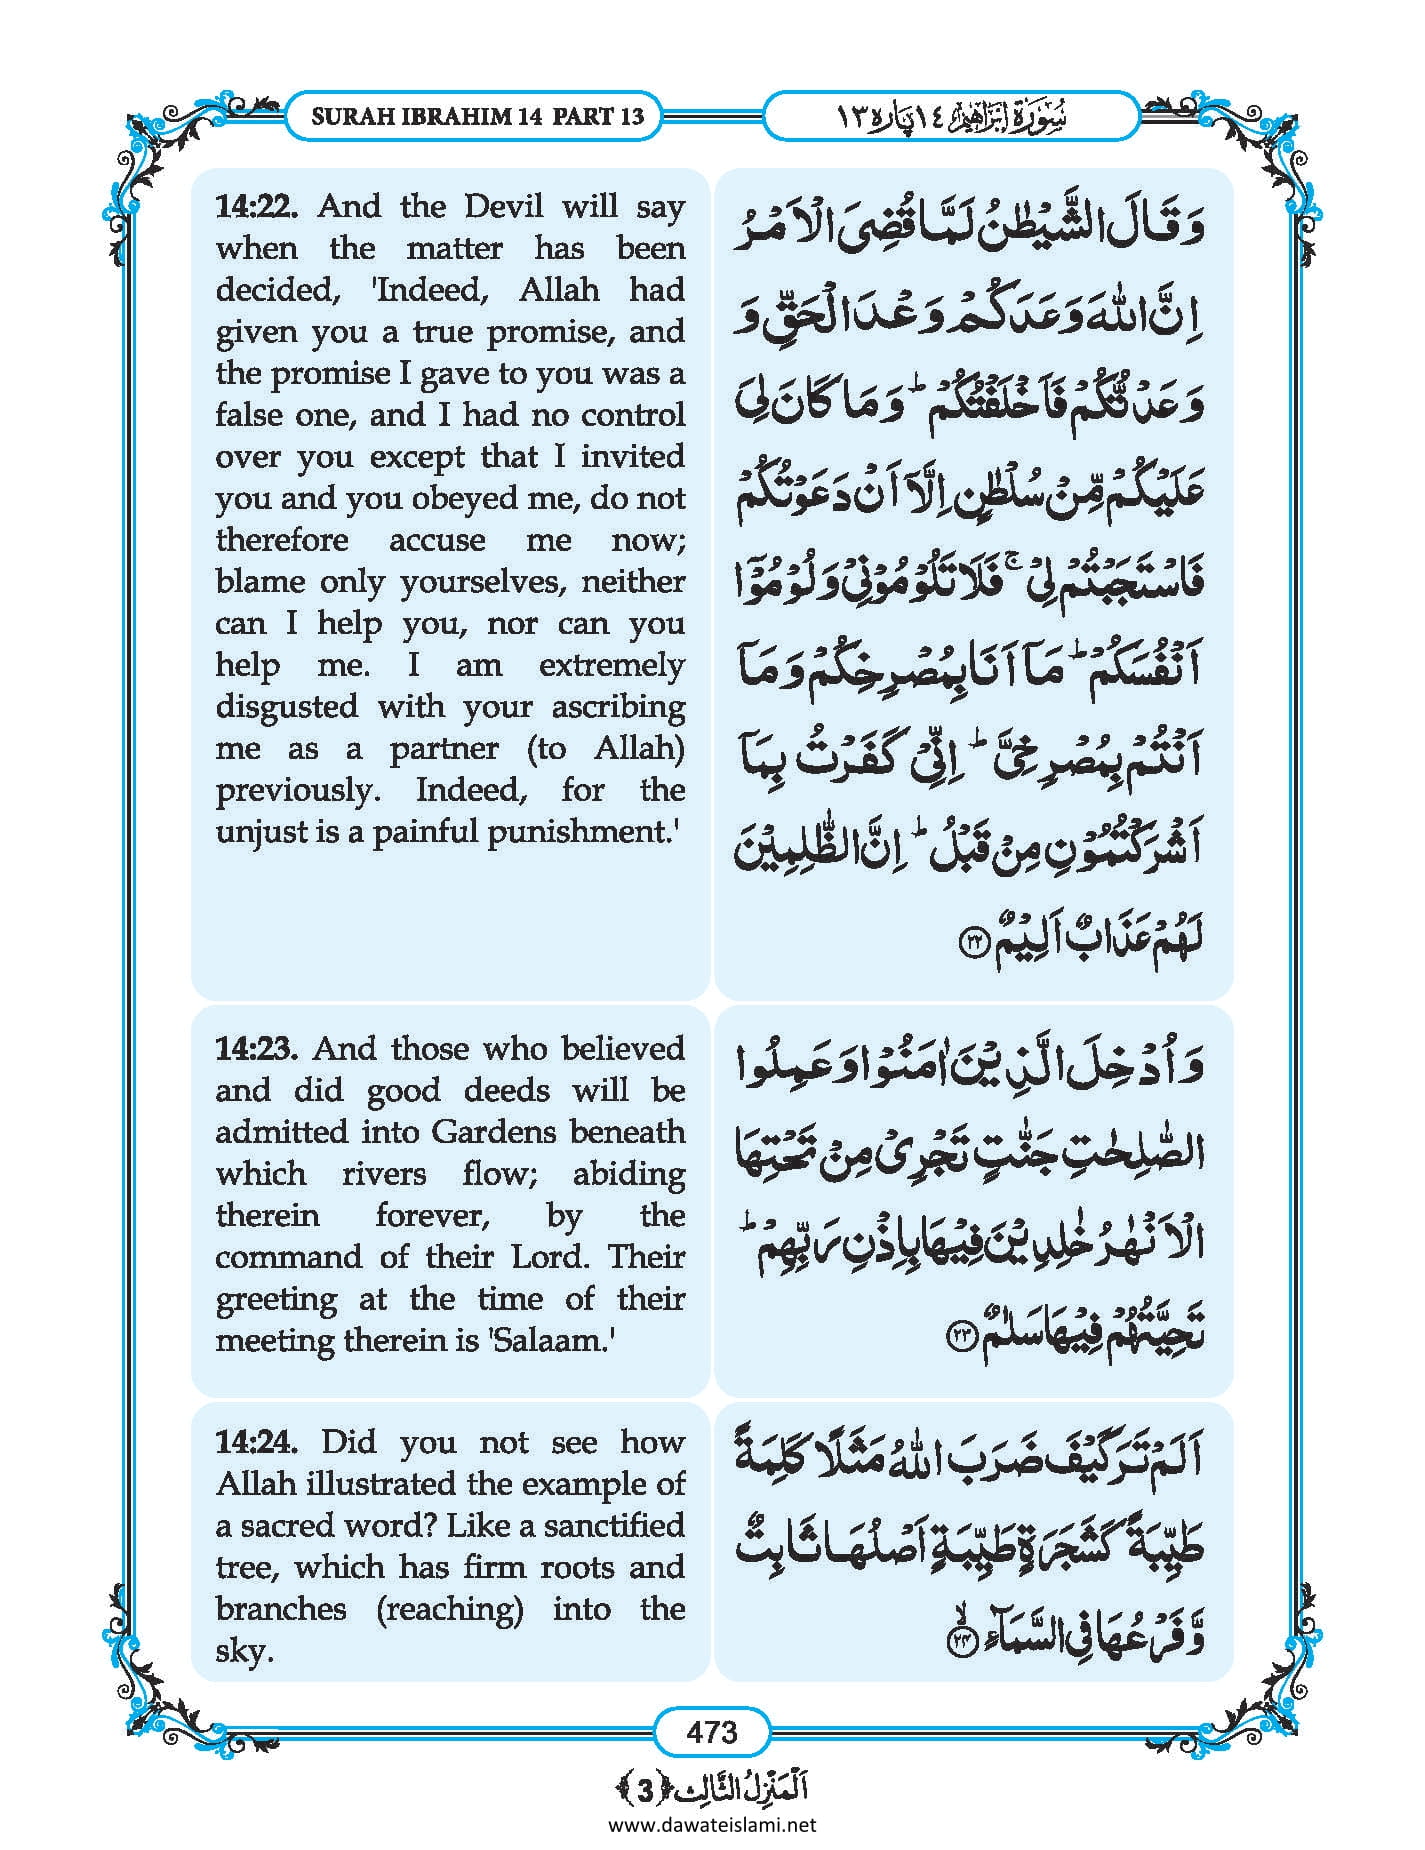 SURAH IBRAHIM 14 PART 13
سُوْرَةُ اِبْرٰهِيْم ١٤ پاره ١٣
14:22. And the Devil will say
when the matter has been
decided, 'Indeed, Allah had
given you a true promise, and
the promise I gave to you was a
false one, and I had no control
over you except that I invited
you and you obeyed me, do not
therefore accuse me now;
blame only yourselves, neither
can I help you, nor can you
help me. I am extremely
disgusted with your ascribing
me as a partner (to Allah)
previously. Indeed, for the
unjust is a painful punishment.'
وَ قَالَ الشَّیْطٰنُ لَمَّا قُضِیَ الْاَمْرُ
اِنَّ اللّٰهَ وَعَدَكُمْ وَعْدَ الْحَقِّ وَ
وَعَدْتُّكُمْ فَاَخْلَفْتُكُمْ ؕ وَ مَا كَانَ لِیَ
عَلَیْكُمْ مِّنْ سُلْطٰنٍ اِلَّاۤ اَنْ دَعَوْتُكُمْ
فَاسْتَجَبْتُمْ لِیْ ۚ فَلَا تَلُوْمُوْنِیْ وَ لُوْمُوْۤا
اَنْفُسَكُمْ ؕ مَاۤ اَنَا بِمُصْرِخِكُمْ وَ مَاۤ
اَنْتُمْ بِمُصْرِخِیَّ ؕ اِنِّیْ كَفَرْتُ بِمَاۤ
اَشْرَكْتُمُوْنِ مِنْ قَبْلُ ؕ اِنَّ الظّٰلِمِیْنَ
لَهُمْ عَذَابٌ اَلِیْمٌ ۲۲
14:23. And those who believed
and did good deeds will be
admitted into Gardens beneath
which rivers flow; abiding
therein forever, by the
command of their Lord. Their
greeting at the time of their
meeting therein is 'Salaam.'
وَ اُدْخِلَ الَّذِیْنَ اٰمَنُوْا وَ عَمِلُوا
الصّٰلِحٰتِ جَنّٰتٍ تَجْرِیْ مِنْ تَحْتِهَا
الْاَنْهٰرُ خٰلِدِیْنَ فِیْهَا بِاِذْنِ رَبِّهِمْ ؕ
تَحِیَّتُهُمْ فِیْهَا سَلٰمٌ ۲۳
14:24. Did you not see how
Allah illustrated the example of
a sacred word? Like a sanctified
tree, which has firm roots and
branches (reaching) into the
sky.
اَلَمْ تَرَ كَیْفَ ضَرَبَ اللّٰهُ مَثَلًا كَلِمَةً
طَیِّبَةً كَشَجَرَةٍ طَیِّبَةٍ اَصْلُهَا ثَابِتٌ
وَّ فَرْعُهَا فِی السَّمَآءِ ۙ ۲۴
473
اَلْمَنْزِلُ الثَّالِث ﴿3﴾
www.dawateislami.net